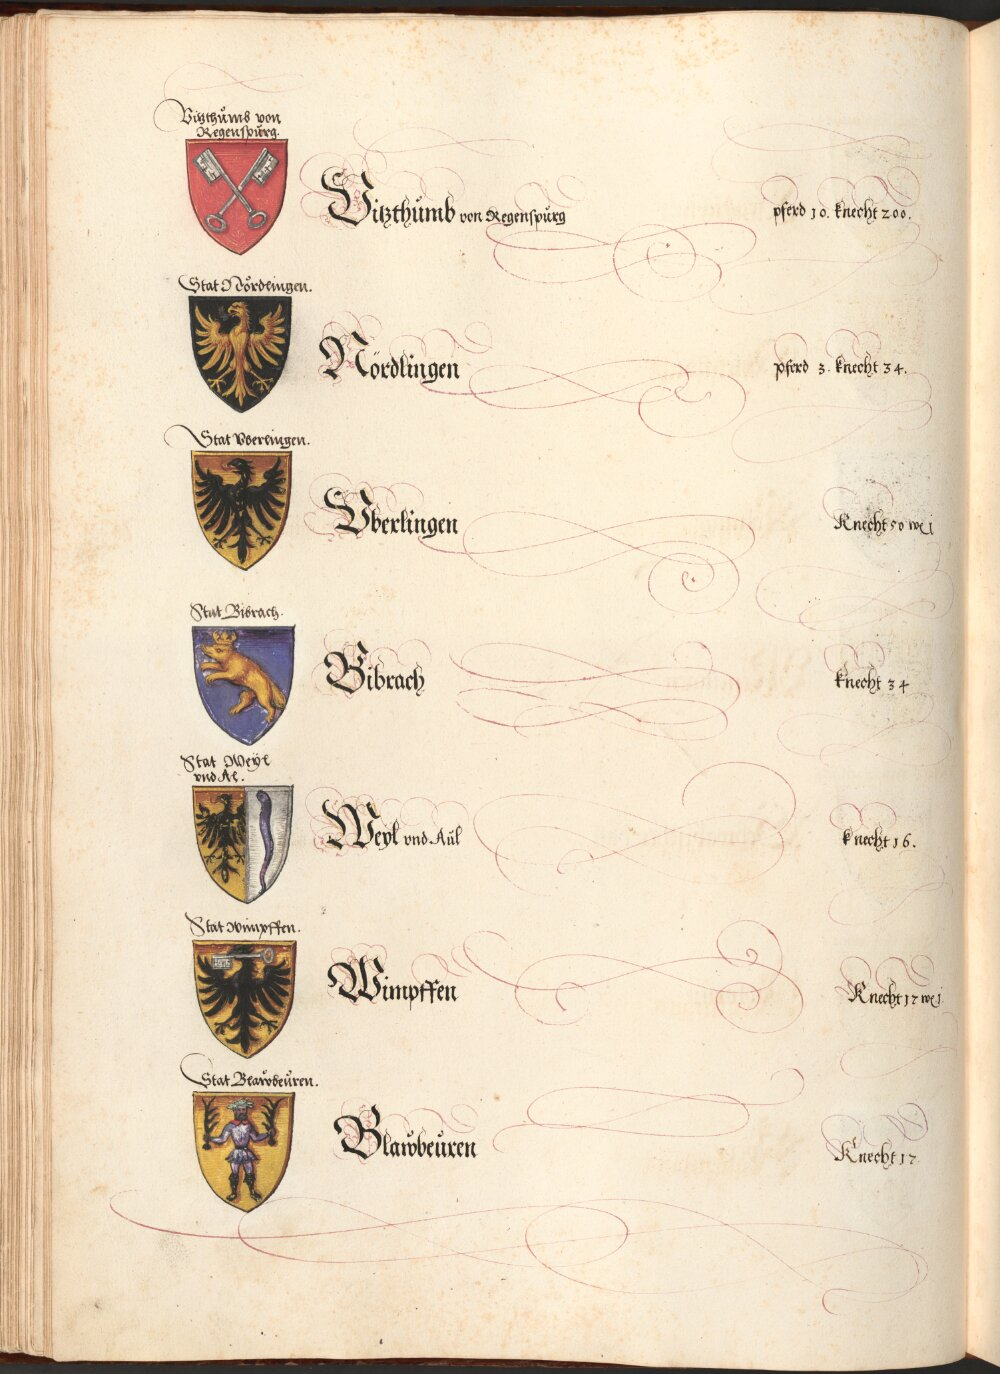 Vitzthumbs von
Regenspůrg.
Vitzthůmb von Regenspůrg pferd 10. knecht 200.
Stat Nördlingen.
Nördlingen pferd 3. knecht 34.
Stat Vberlingen.
Vberlingen Knecht 50
Stat Bibrach.
Bibrach knecht 34
Stat Weÿl
vnd Al.
Weyl vnd Aůl knecht 16.
Stat Wimpffen.
Wimpffen Knecht 17
Stat Blawbeůren.
Blawbeůren Knecht 17